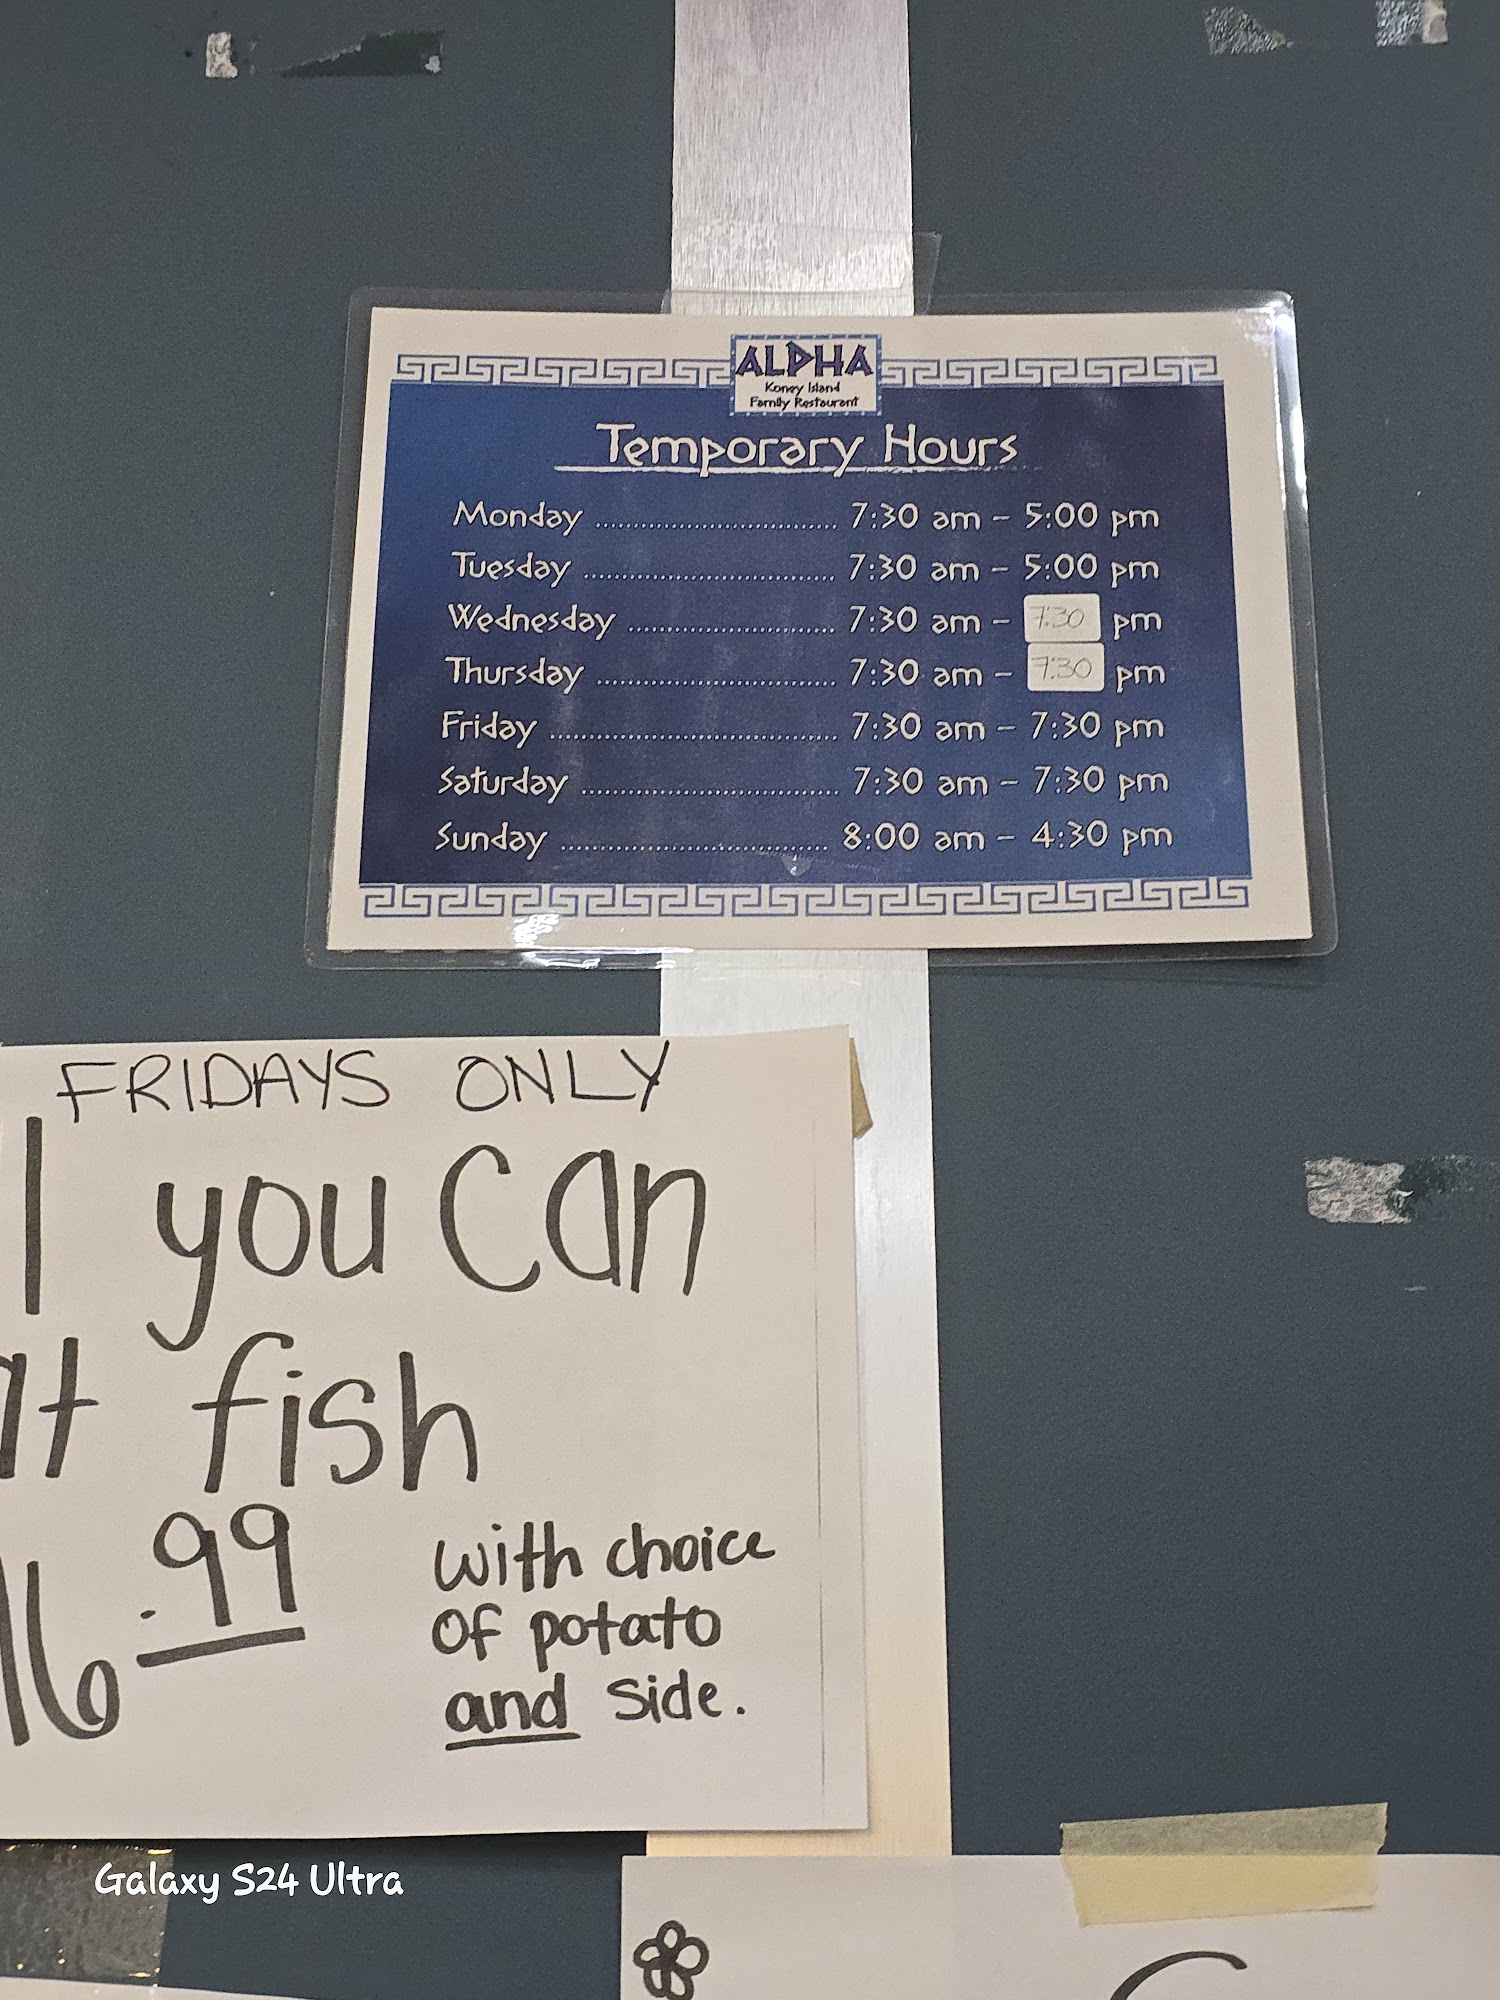 ALPHA
Koney Island
Family Restaurant
Temporary Hours
Monday .............................. 7:30 am – 5:00 pm
Tuesday ............................... 7:30 am – 5:00 pm
Wednesday ......................... 7:30 am – 7:30 pm
Thursday ............................. 7:30 am – 7:30 pm
Friday ................................... 7:30 am – 7:30 pm
Saturday ............................... 7:30 am – 7:30 pm
Sunday ................................ 8:00 am – 4:30 pm
FRIDAYS ONLY
l you can
at fish
16.99
with choice
of potato
and side.
Galaxy S24 Ultra